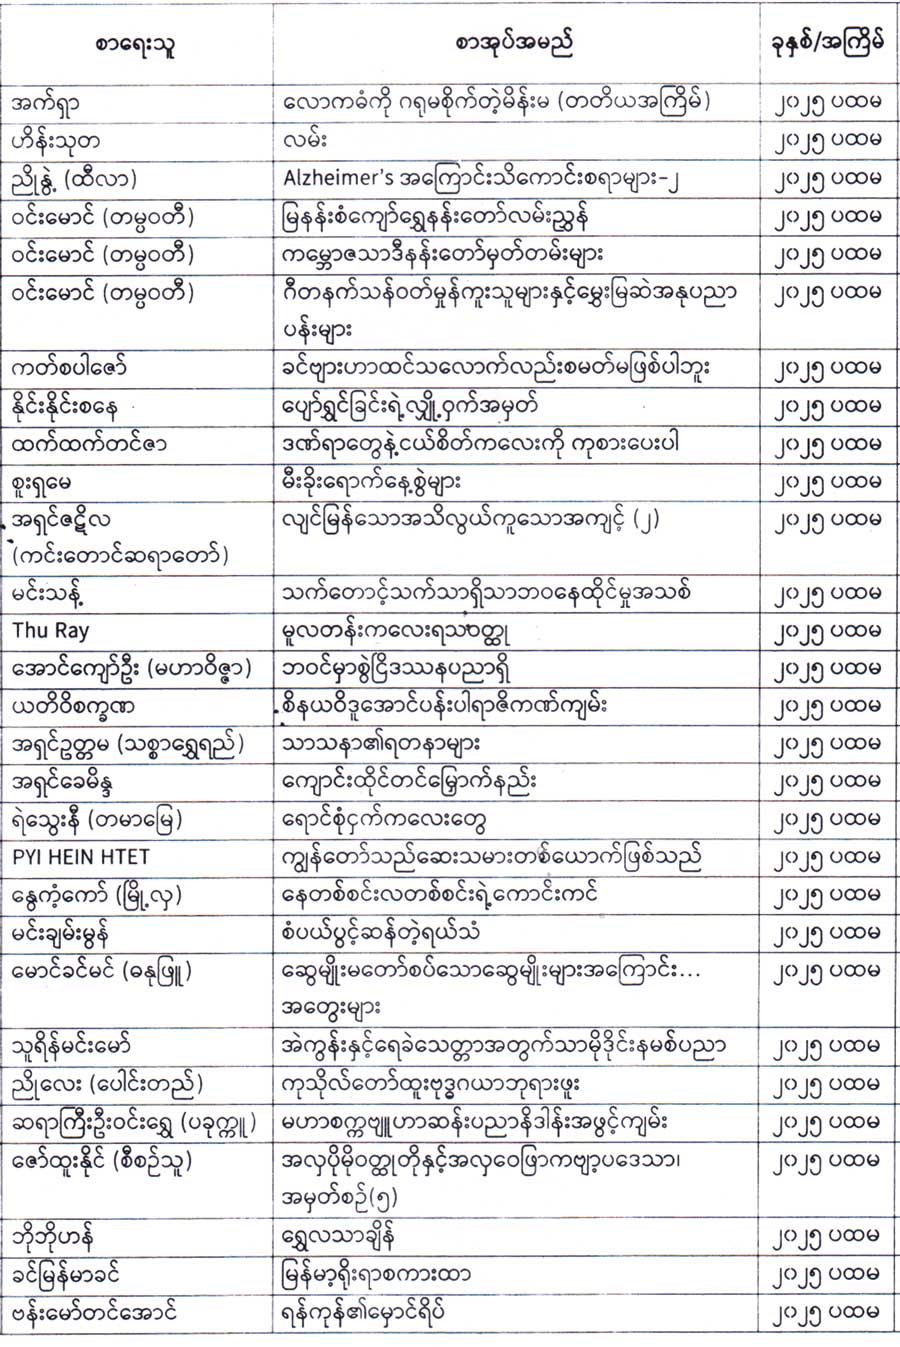 စာရေးသူ စာအုပ်အမည် ခုနှစ်/အကြိမ်
အက်ရှာ လောကဓံကို ဂရုမစိုက်တဲ့မိန်းမ (တတိယအကြိမ်) ၂၀၂၅ ပထမ
ဟိန်းသုတ လမ်း ၂၀၂၅ ပထမ
ညိုနွဲ့ (ထီလာ) Alzheimer's အကြောင်းသိကောင်းစရာများ-၂ ၂၀၂၅ ပထမ
ဝင်းမောင် (တမ္ပဝတီ) မြနန်းစံကျော်ရွှေနန်းတော်လမ်းညွှန် ၂၀၂၅ ပထမ
ဝင်းမောင် (တမ္ပဝတီ) ကမ္ဘောဇသာဒီနန်းတော်မှတ်တမ်းများ ၂၀၂၅ ပထမ
ဝင်းမောင် (တမ္ပဝတီ) ဂီတနက်သန်ဝတ်မှုန်ကူးသူများနှင့်မွှေးမြဆဲအနုပညာ ၂၀၂၅ ပထမ
ပန်းများ
ကတ်စပါဇော် ခင်ဗျားဟာထင်သလောက်လည်းစမတ်မဖြစ်ပါဘူး ၂၀၂၅ ပထမ
နိုင်းနိုင်းစနေ ပျော်ရွှင်ခြင်းရဲ့လျှို့ဝှက်အမှတ် ၂၀၂၅ ပထမ
ထက်ထက်တင်ဇာ ဒဏ်ရာတွေနဲ့ငယ်စိတ်ကလေးကို ကုစားပေးပါ ၂၀၂၅ ပထမ
စူးရှမေ မီးခိုးရောက်နေ့စွဲများ ၂၀၂၅ ပထမ
အရှင်ဇဋိလ လျင်မြန်သောအသိလွယ်ကူသောအကျင့် (၂) ၂၀၂၅ ပထမ
(ကင်းတောင်ဆရာတော်)
မင်းသန့် သက်တောင့်သက်သာရှိသာဘဝနေထိုင်မှုအသစ် ၂၀၂၅ ပထမ
Thu Ray မူလတန်းကလေးရသဝတ္ထု ၂၀၂၅ ပထမ
အောင်ကျော်ဦး (မဟာဝိဇ္ဇာ) ဘဝင်မှာစွဲငြိဒဿနပညာရှိ ၂၀၂၅ ပထမ
ယတိဝိစက္ခဏ စိနယဝိဒူအောင်ပန်းပါရာဇိကဏ်ကျမ်း ၂၀၂၅ ပထမ
အရှင်ဥတ္တမ (သစ္စာရွှေရည်) သာသနာ၏ရတနာများ ၂၀၂၅ ပထမ
အရှင်ခေမိန္ဒ ကျောင်းထိုင်တင်မြှောက်နည်း ၂၀၂၅ ပထမ
ရဲသွေးနီ (တမာမြေ) ရောင်စုံငှက်ကလေးတွေ ၂၀၂၅ ပထမ
PYI HEIN HTET ကျွန်တော်သည်ဆေးသမားတစ်ယောက်ဖြစ်သည် ၂၀၂၅ ပထမ
နွေကံ့ကော် (မြို့လှ) နေတစ်စင်းလတစ်စင်းရဲ့ကောင်းကင် ၂၀၂၅ ပထမ
မင်းချမ်းမွန် စံပယ်ပွင့်ဆန်တဲ့ရယ်သံ ၂၀၂၅ ပထမ
မောင်ခင်မင် (ဓနုဖြူ) ဆွေမျိုးမတော်စပ်သောဆွေမျိုးများအကြောင်း... ၂၀၂၅ ပထမ
အတွေးများ
သူရိန်မင်းမော် အဲကွန်းနှင့်ရေခဲသေတ္တာအတွက်သာမိုဒိုင်းနမစ်ပညာ ၂၀၂၅ ပထမ
ညိုလေး (ပေါင်းတည်) ကုသိုလ်တော်ထူးဗုဒ္ဓဂယာဘုရားဖူး ၂၀၂၅ ပထမ
ဆရာကြီးဦးဝင်းရွှေ (ပခုက္ကူ) မဟာစက္ကဗျူဟာဆန်းပညာနိဒါန်းအဖွင့်ကျမ်း ၂၀၂၅ ပထမ
ဇော်ထူးနိုင် (စီစဉ်သူ) အလှပိုမိုဝတ္ထုတိုနှင့်အလှဝေဖြာကဗျာ့ပဒေသာ၊ ၂၀၂၅ ပထမ
အမှတ်စဉ်(၅)
ဘိုဘိုဟန် ရွှေလသာချိန် ၂၀၂၅ ပထမ
ခင်မြန်မာခင် မြန်မာ့ရိုးရာစကားထာ ၂၀၂၅ ပထမ
ဗန်းမော်တင်အောင် ရန်ကုန်၏မှောင်ရိပ် ၂၀၂၅ ပထမ